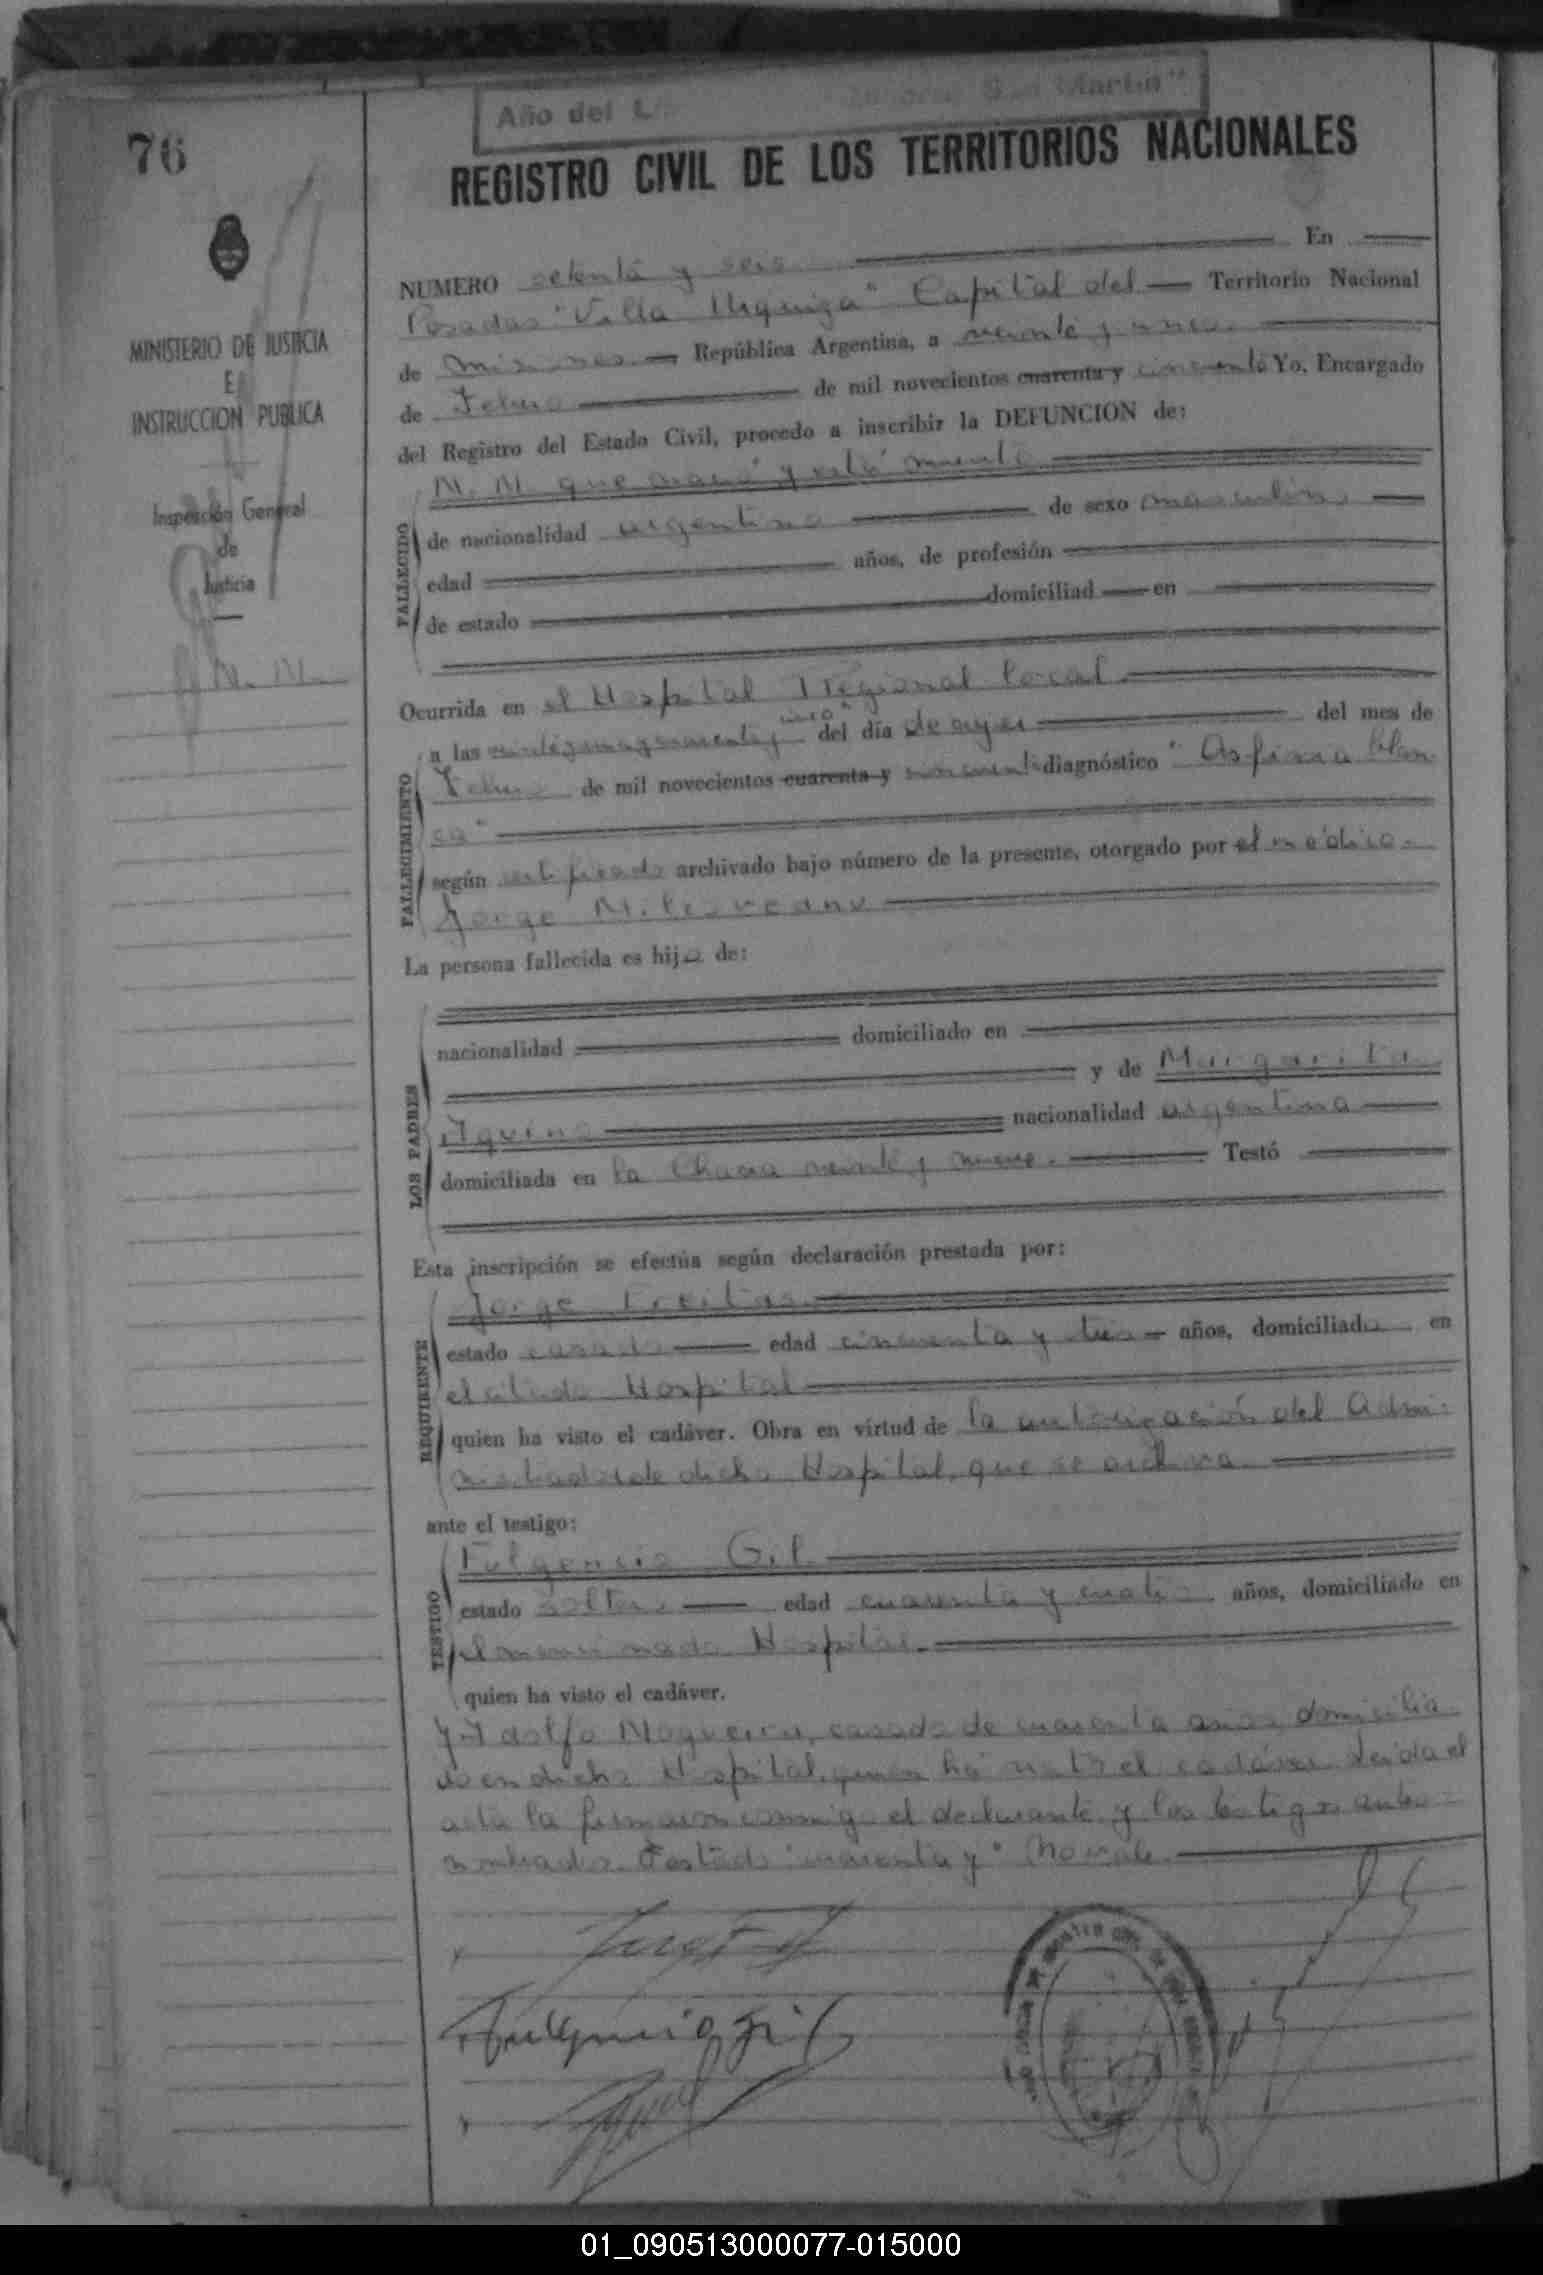 Año del L
San Martín"
76
REGISTRO CIVIL DE LOS TERRITORIOS NACIONALES
MINISTERIO DE JUSTICIA
E
INSTRUCCION PUBLICA
Inspección General
de
Justicia
N. N.
NUMERO setenta y seis En
Posadas "Villa Urquiza" Capital del Territorio Nacional
de Misiones República Argentina, a veinte y uno
de Febrero de mil novecientos cuarenta y cincuenta Yo, Encargado
del Registro del Estado Civil, procedo a inscribir la DEFUNCION de:
FALLECIDO
N. N. que nació y está muerto
de nacionalidad argentino de sexo masculino
edad años, de profesión
de estado domiciliad en
Ocurrida en el Hospital Regional local
FALLECIMIENTO
a las cinco del día de ayer del mes de
Febrero de mil novecientos cuarenta y cincuenta diagnóstico "Asfixia blan
ca"
según certificado archivado bajo número de la presente, otorgado por el médico
Jorge
La persona fallecida es hijo de:
LOS PADRES
nacionalidad domiciliado en
y de Margarita
Aquino nacionalidad argentina
domiciliada en la Chacra veinte y nueve. Testó
Esta inscripción se efectúa según declaración prestada por:
REQUIRENTE
Jorge Freitas
estado casado edad cincuenta y tres años, domiciliado en
el citado Hospital
quien ha visto el cadáver. Obra en virtud de la autorización del Admi-
nistrador de dicho Hospital, que se archiva
ante el testigo:
TESTIGO
Fulgencio Gil
estado soltero edad cuarenta y cuatro años, domiciliado en
el mencionado Hospital.
quien ha visto el cadáver.
y Adolfo Nogueira, casado de cuarenta años domicilia
do en dicho Hospital, quien ha visto el cadáver. Leída el
acta la firmaron conmigo el declarante y los testigos ante-
nombrados. Testado "cuarenta y" No vale.
Fulgencio Gil
01_090513000077-015000